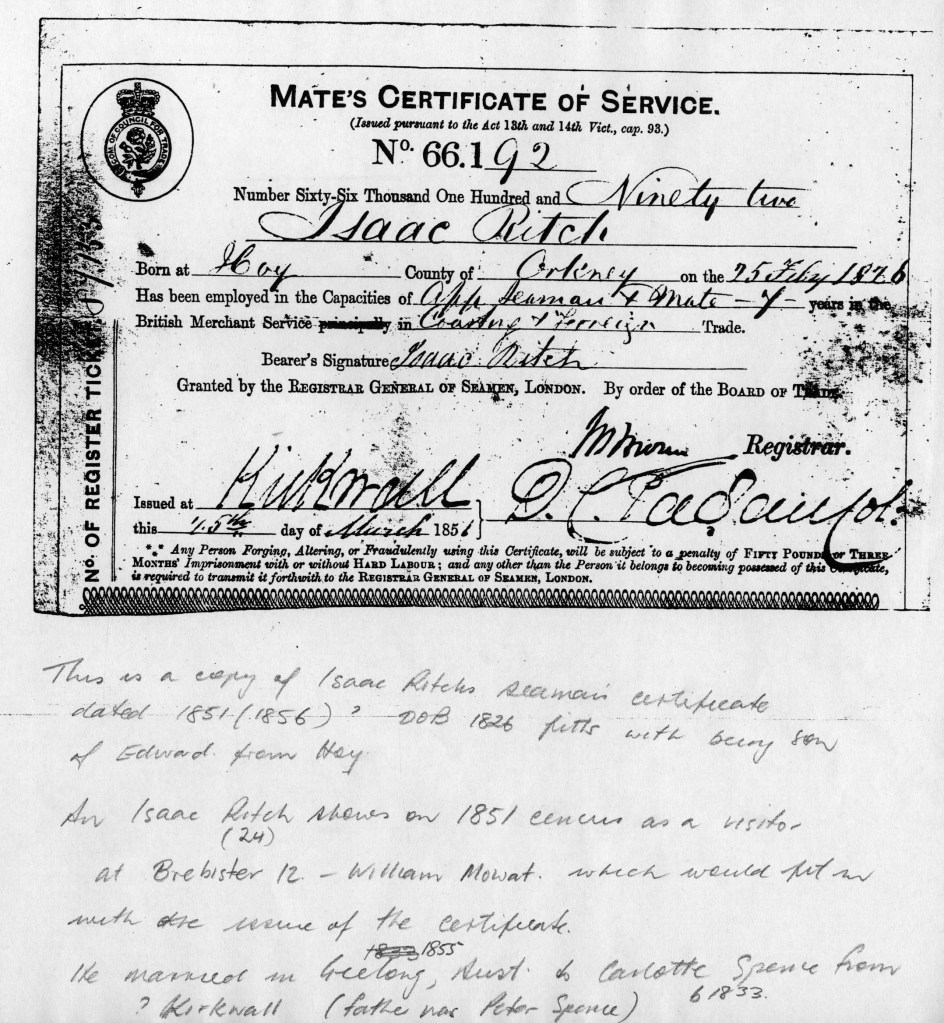 MATE'S CERTIFICATE OF SERVICE.
(Issued pursuant to the Act 13th and 14th Vict., cap. 93.)
No. 66.192
Number Sixty-Six Thousand One Hundred and Ninety two
Isaac Ritch
Born at Hoy County of Orkney on the 25 Feby 1826
Has been employed in the Capacities of App Seaman & Mate - 7 - years in the
British Merchant Service principally in Coasting & Foreign Trade.
Bearer's Signature Isaac Ritch
Granted by the REGISTRAR GENERAL OF SEAMEN, LONDON. By order of the BOARD OF TRADE.
Registrar.
Issued at Kirkwall
this 15th day of March 1851
No. OF REGISTER TICKET
*** Any Person Forging, Altering, or Fraudulently using this Certificate, will be subject to a penalty of FIFTY POUNDS or THREE
MONTHS' Imprisonment with or without HARD LABOUR; and any other than the Person it belongs to becoming possessed of this Certificate,
is required to transmit it forthwith to the REGISTRAR GENERAL OF SEAMEN, LONDON.
This is a copy of Isaac Ritchs seamans certificate
dated 1851 (1856) ? DOB 1826 fitts with being son
of Edward from Hoy.
An Isaac Ritch shows on 1851 cencus as a visitor
(24)
at Brebister 12 - William Mowat. which would fit in
with the issue of the certificate.
1833 1855
He married in Geelong, Aust. to Carlotte Spence from
b 1833.
? Kirkwall (father was Peter Spence)